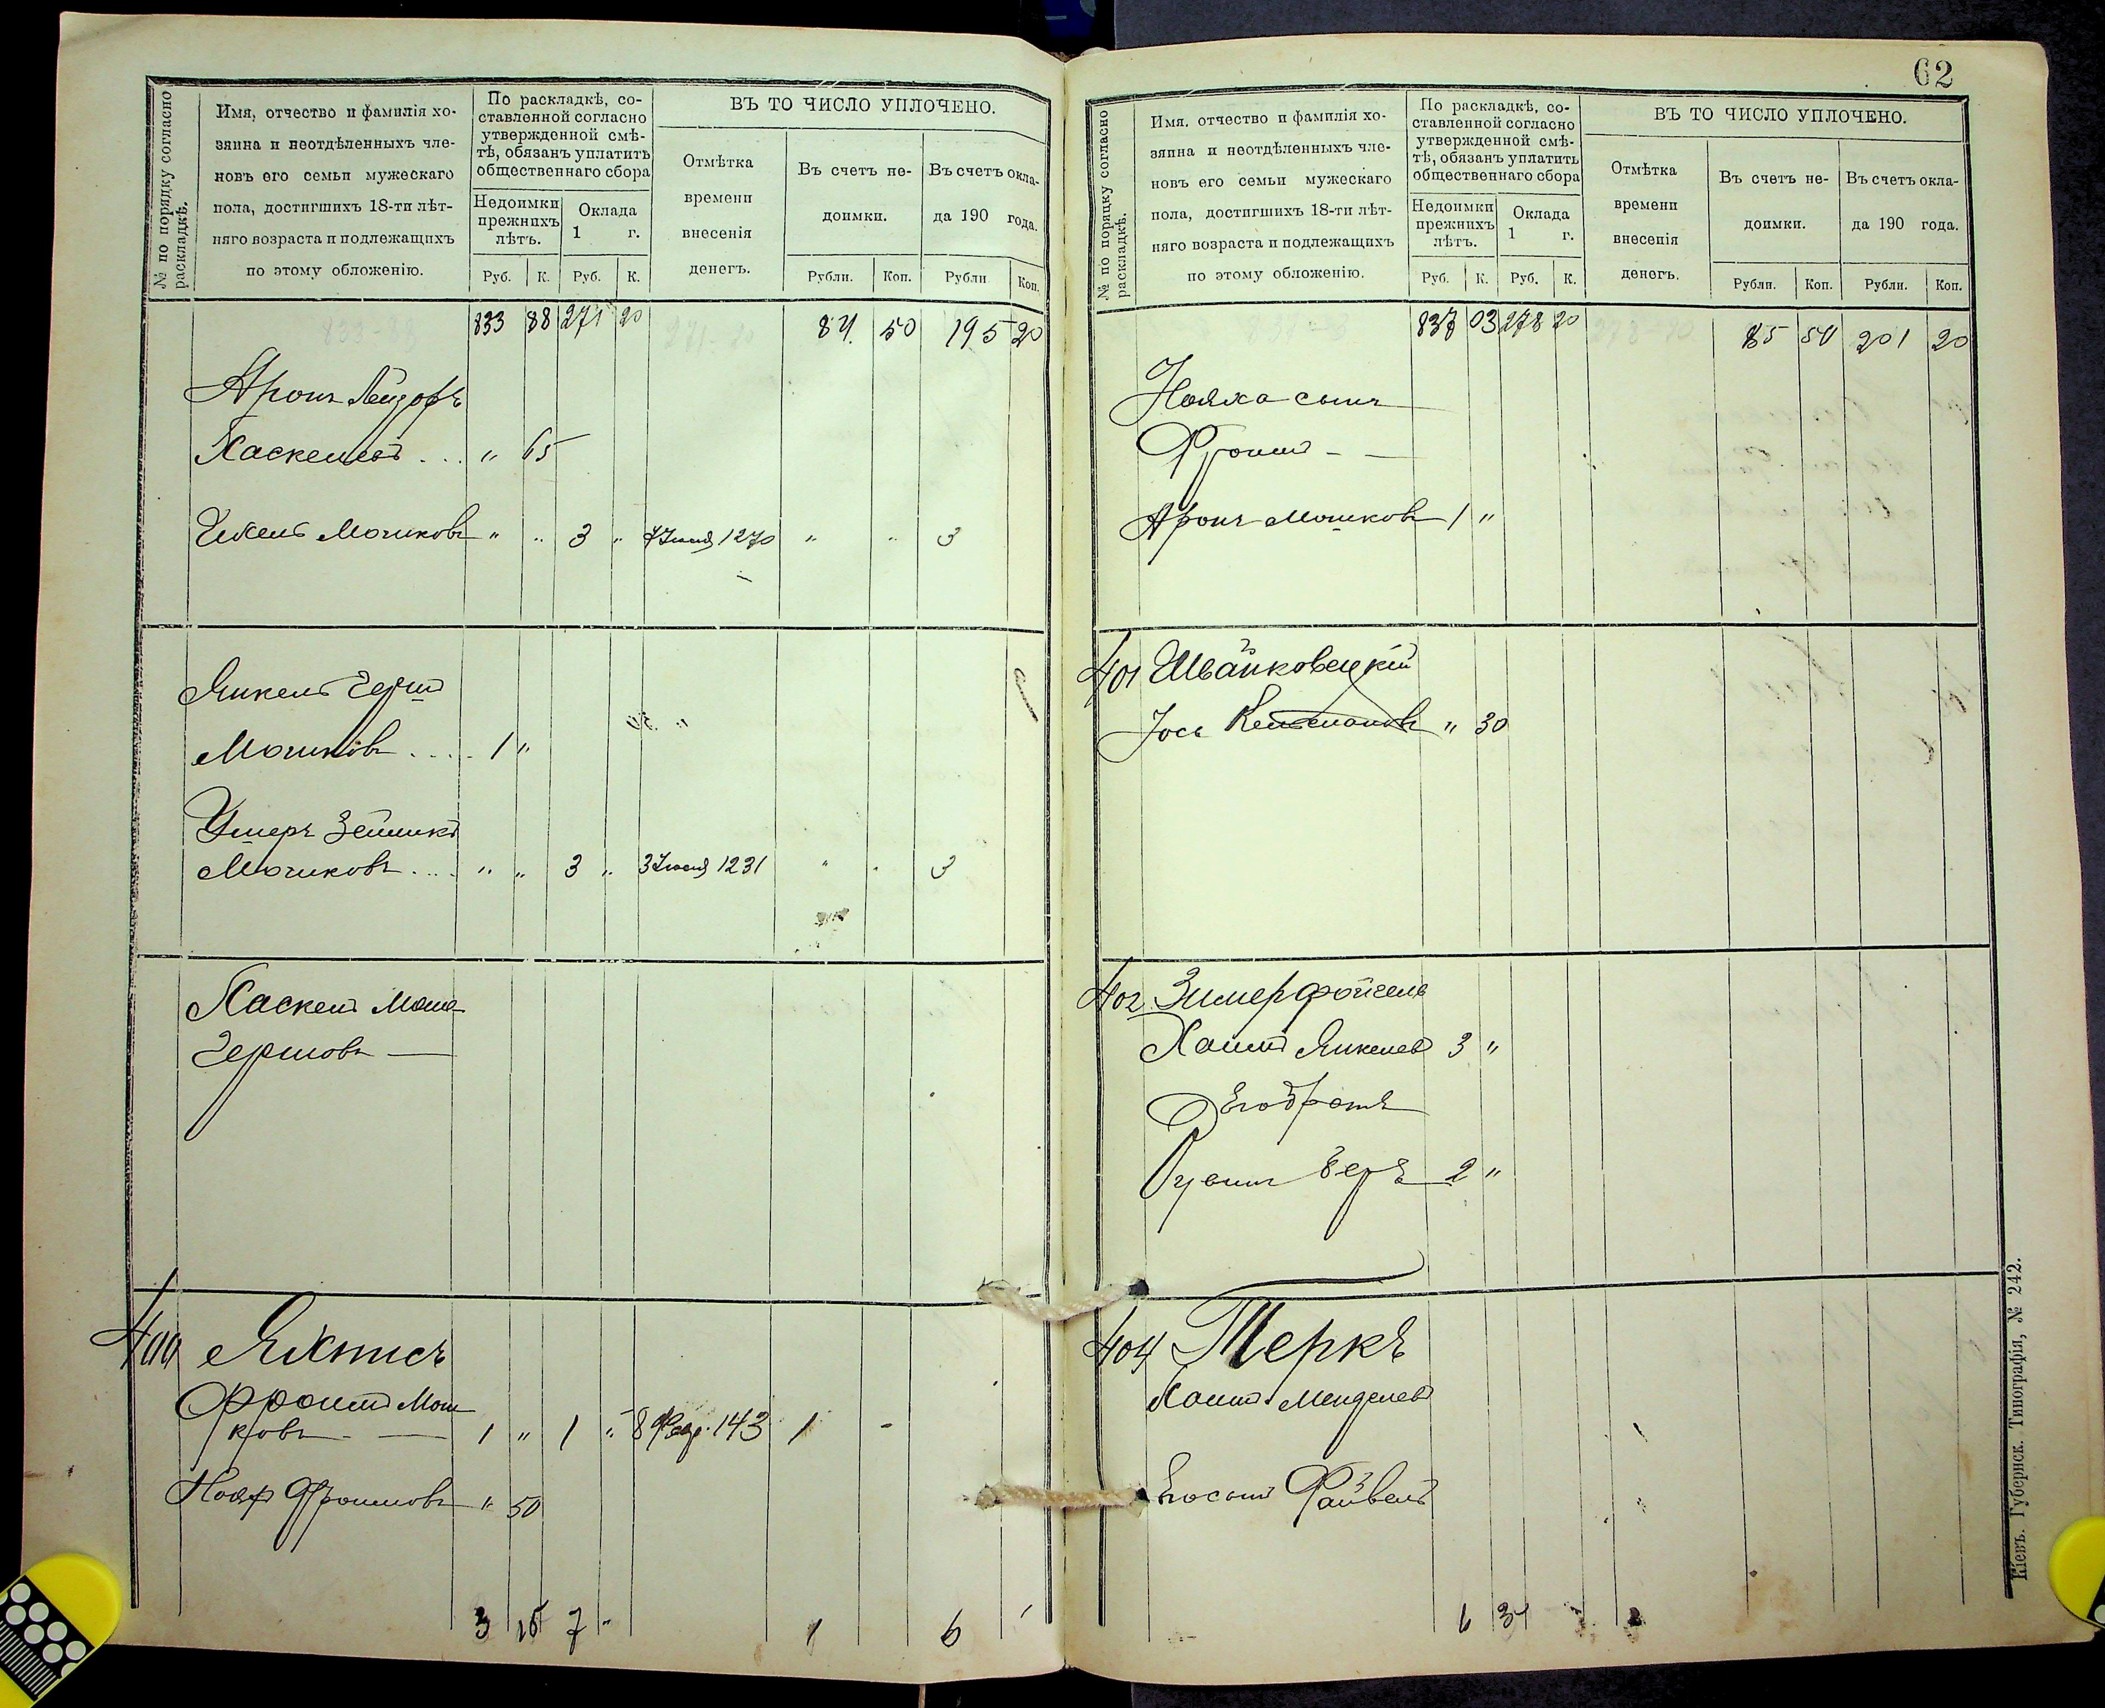 № по порядку согласно раскладкѣ.
Имя, отчество и фамилія хо-
зяина и неотдѣленныхъ чле-
новъ его семьи мужескаго
пола, достигшихъ 18-ти лѣт-
няго возраста и подлежащихъ
по этому обложенію.
По раскладкѣ, со-
ставленной согласно
утвержденной смѣ-
тѣ, обязанъ уплатить
общественнаго сбора
Недоимки прежнихъ лѣтъ.
Оклада 1 г.
Руб. К. Руб. К.
ВЪ ТО ЧИСЛО УПЛОЧЕНО.
Отмѣтка времени внесенія денегъ.
Въ счетъ не-доимки.
Въ счетъ окла-да 190 года.
Рубли. Коп. Рубли Коп.
833 88 271 20 84 50 195 20
Аронъ
Хаскелевъ . . . " 65
Мошковъ " " 3 " 1270 " " 3
Янкель Герш
Мошковъ . . . . 1 "
Умеръ Зейликъ
Мошковъ . . . . " " 3 " 3 Іюня 1231 " " 3
Хаскель Мош
Гершовъ —
400 Яхнисъ
Фроимъ Мош
ковъ - — 1 " 1 " 8 Февр. 143 1 -
Фроимовъ " 50
3 15 7 " 1 6
62
№ по порядку согласно раскладкѣ.
Имя, отчество и фамилія хо-
зяина и неотдѣленныхъ чле-
новъ его семьи мужескаго
пола, достигшихъ 18-ти лѣт-
няго возраста и подлежащихъ
по этому обложенію.
По раскладкѣ, со-
ставленной согласно
утвержденной смѣ-
тѣ, обязанъ уплатить
общественнаго сбора
Недоимки прежнихъ лѣтъ.
Оклада 1 г.
Руб. К. Руб. К.
ВЪ ТО ЧИСЛО УПЛОЧЕНО.
Отмѣтка времени внесенія денегъ.
Въ счетъ не-доимки.
Въ счетъ окла-да 190 года.
Рубли. Коп. Рубли. Коп.
837 03 278 20 85 50 201 20
Нояха сынъ
Фроимъ - —
Аронъ Мошковъ 1 "
401 Швайковецкій
Іось " 30
402 Зимерфойгель
Хаимъ Янкелев 3 "
Его братъ
Рувинъ Беръ 2 "
404 Теркъ
Хаимъ Менделев
Его сынъ Файвель
6 3
Кіевъ. Губернск. Типографія, № 242.